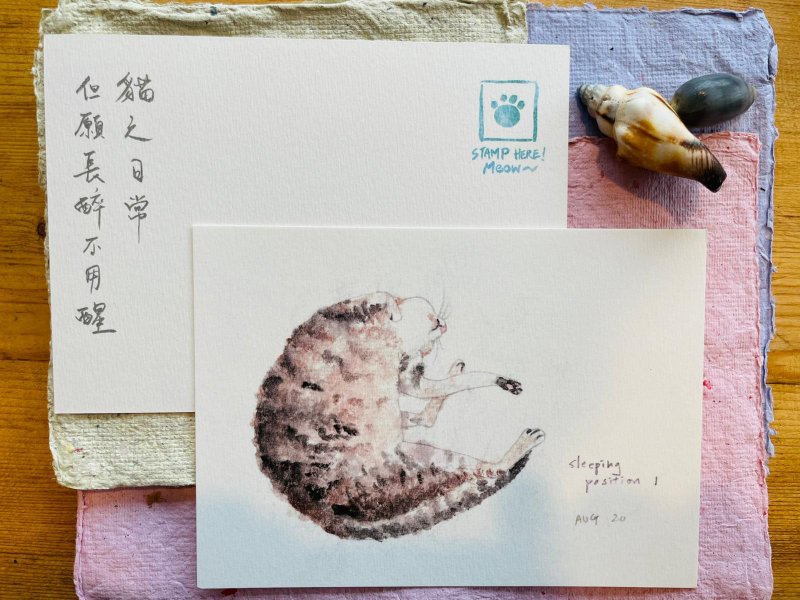 貓之日常
但願長醉不用醒
STAMP HERE!
Meow~
sleeping
position 1
AUG 20